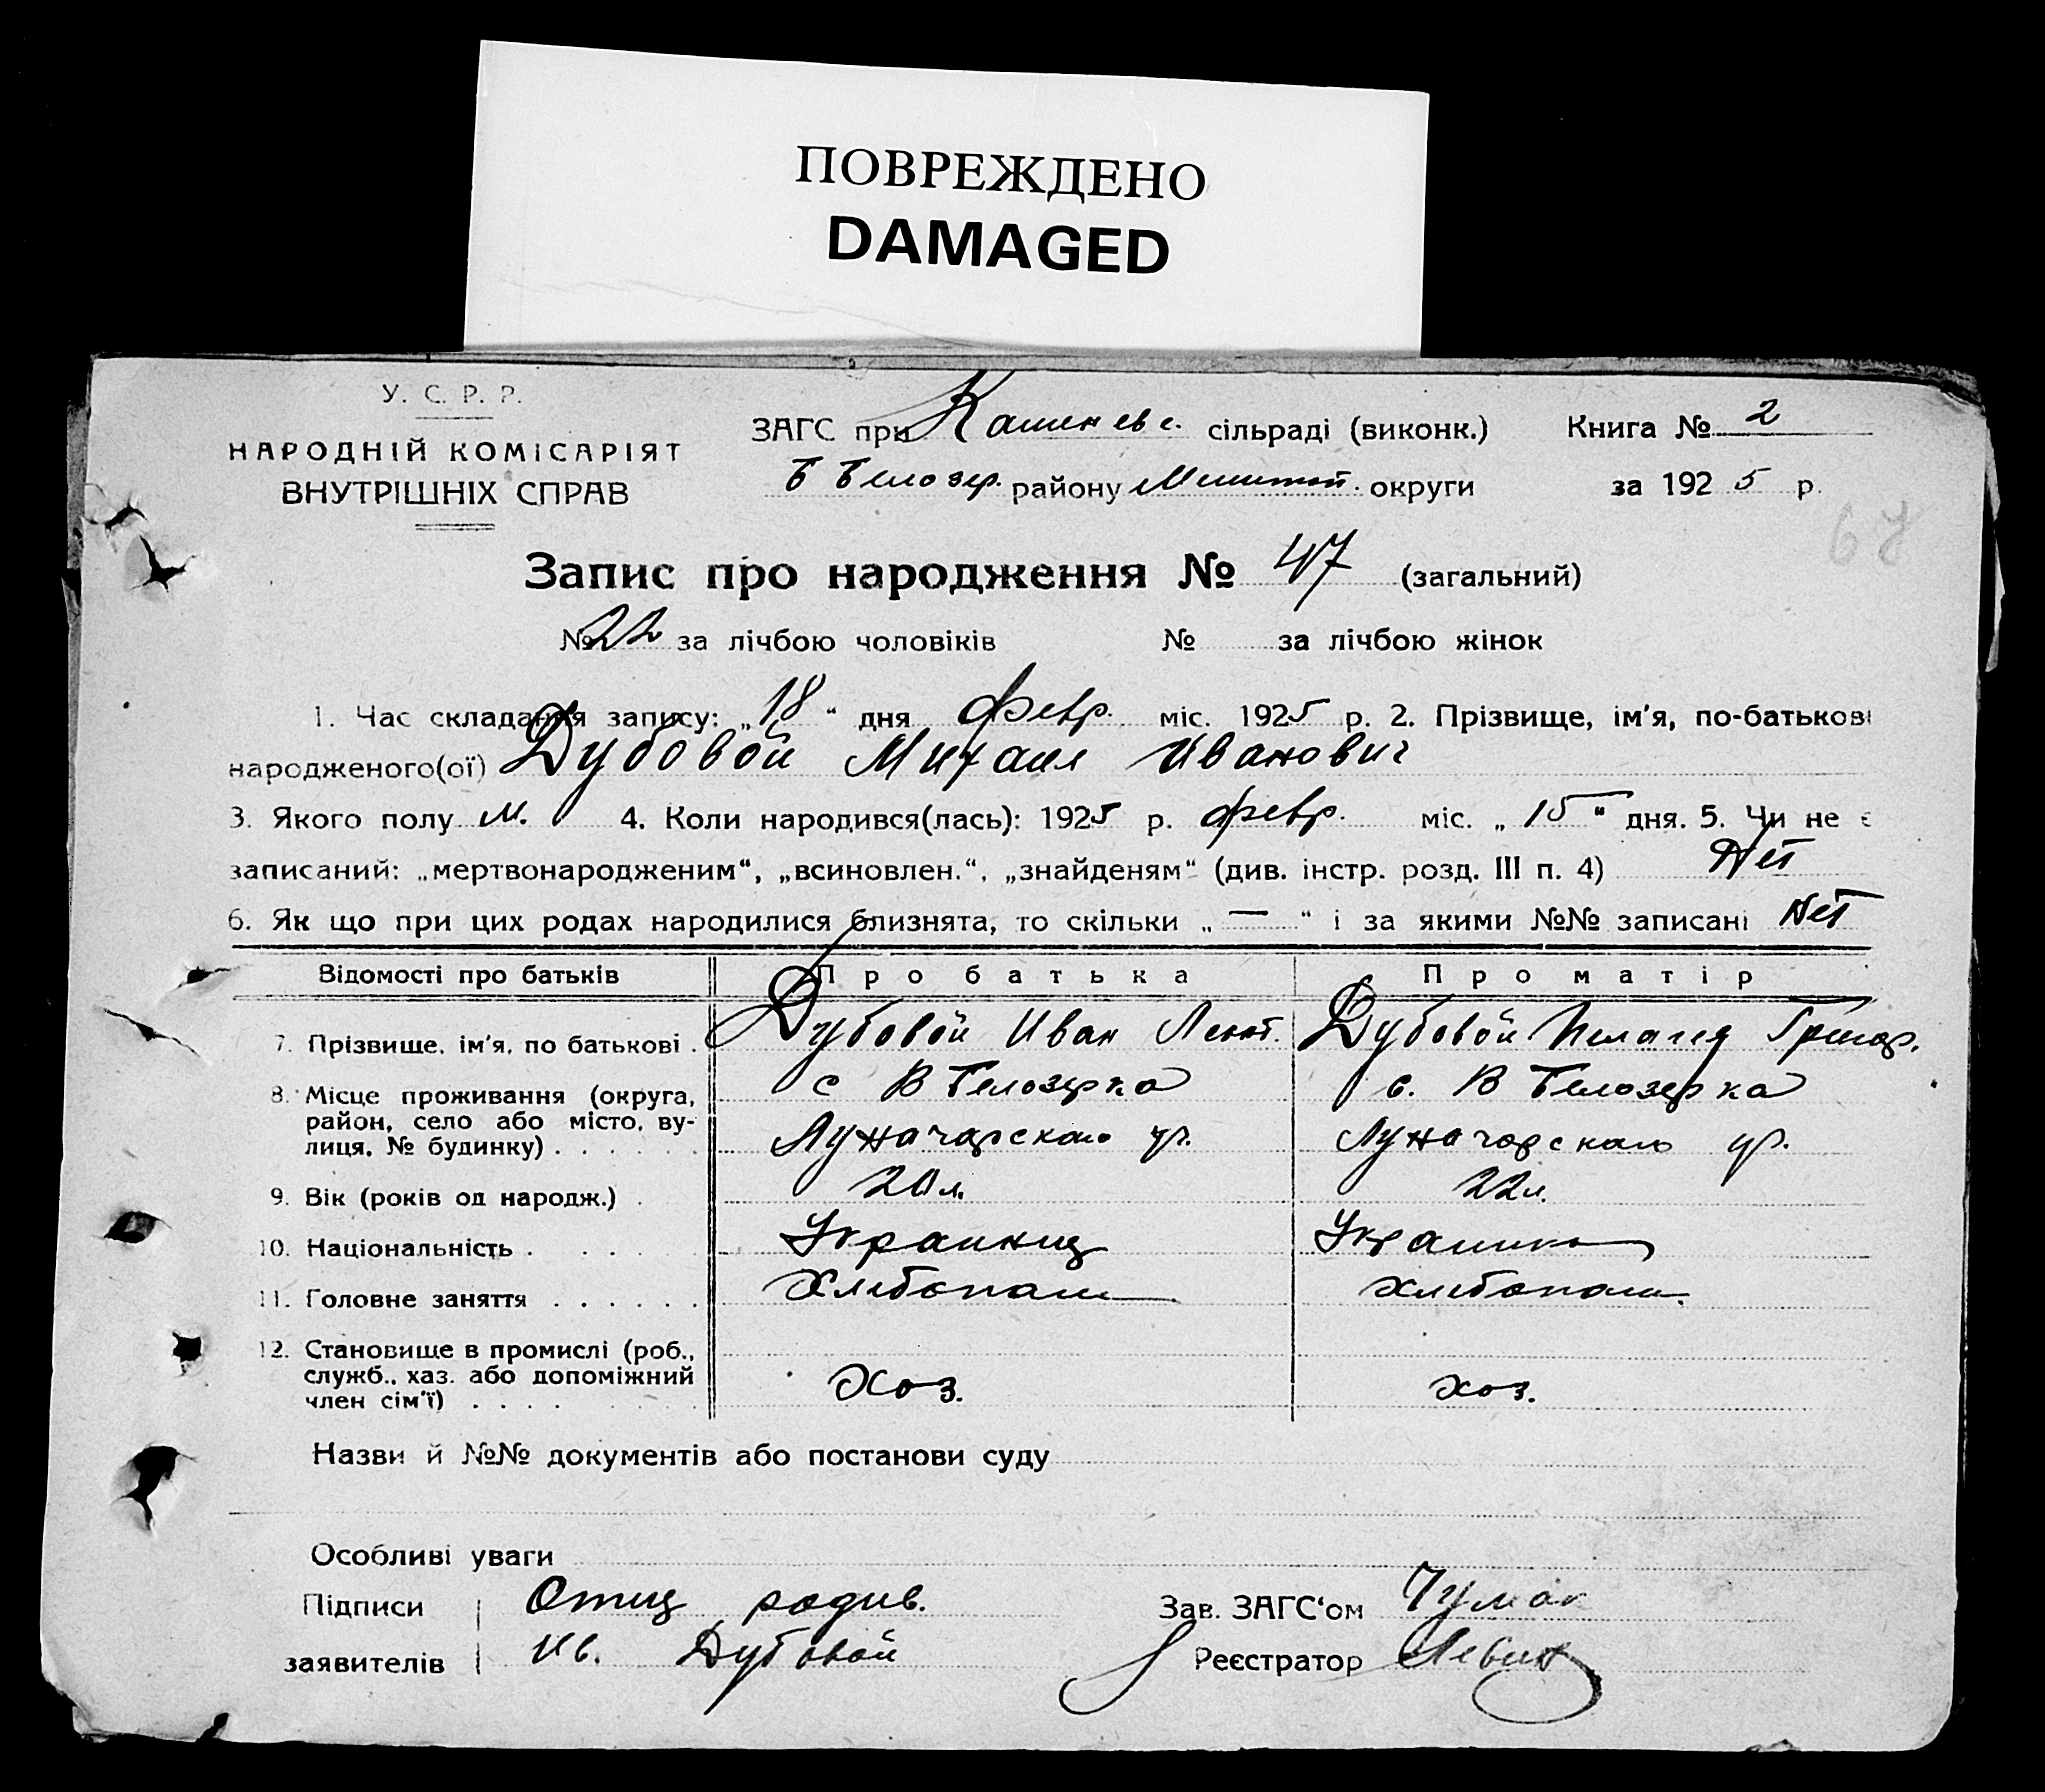 ПОВРЕЖДЕНО
DAMAGED
У. С. Р. Р.
НАРОДНІЙ КОМІСАРІЯТ
ВНУТРІШНІХ СПРАВ
ЗАГС при Каменев с. сільраді (виконк.)
Б Белозер. району Мелитоп. округи
Книга № 2
за 1925 р.
67
Запис про народження № 47 (загальний)
№ 22 за лічбою чоловіків № за лічбою жінок
1. Час складання запису: „18“ дня февр. міс. 1925 р. 2. Прізвище, ім'я, по-батькові
народженого(ої) Дубовой Михаил Иванович
3. Якого полу м. 4. Коли народився(лась): 1925 р. февр. міс. „15“ дня. 5. Чи не є
записаний: „мертвонародженим“, „всиновлен.“, „знайденям“ (див. інстр. розд. III п. 4) Нет
6. Як що при цих родах народилися близнята, то скільки „—“ і за якими №№ записані Нет
Відомості про батьків Про батька Про матір
7. Прізвище, ім'я, по батькові . Дубовой Иван Леонт. Дубовой Пелагея Григор.
8. Місце проживання (округа, с В Белозерка с. В Белозерка
район, село або місто, ву-
лиця, № будинку) . . . . . . Луначарского ур. Луначарского ур.
9. Вік (років од народж.) . 20 л. 22 л.
10. Національність . . . . . Украинец Украинка
11. Головне заняття . . . . . . Хлебопаш Хлебопаш.
12. Становище в промислі (роб.,
служб., хаз. або допоміжний Хоз. хоз.
член сім'ї) . . . .
Назви й №№ документів або постанови суду
Особливі уваги
Підписи Отец родив. Зав. ЗАГС'ом Чумак
заявителів Ив. Дубовой Реєстратор Левин